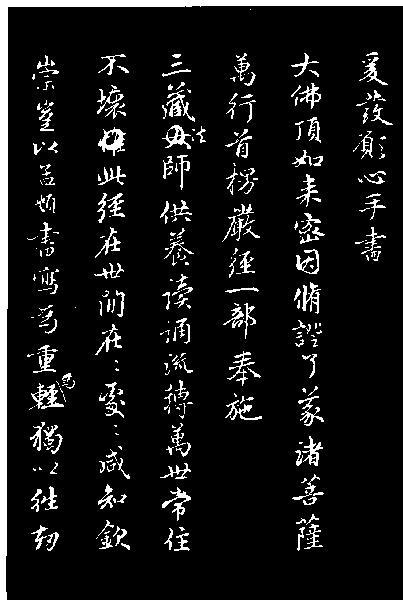 爰發願心手書
大佛頂如来密因脩證了義諸菩薩
萬行首楞嚴經一部奉施
三藏法師供養读誦流轉萬世常住
不壞此經在世間在〻處〻咸知欽
崇豈以孟頫書寫為重輕獨以往劫